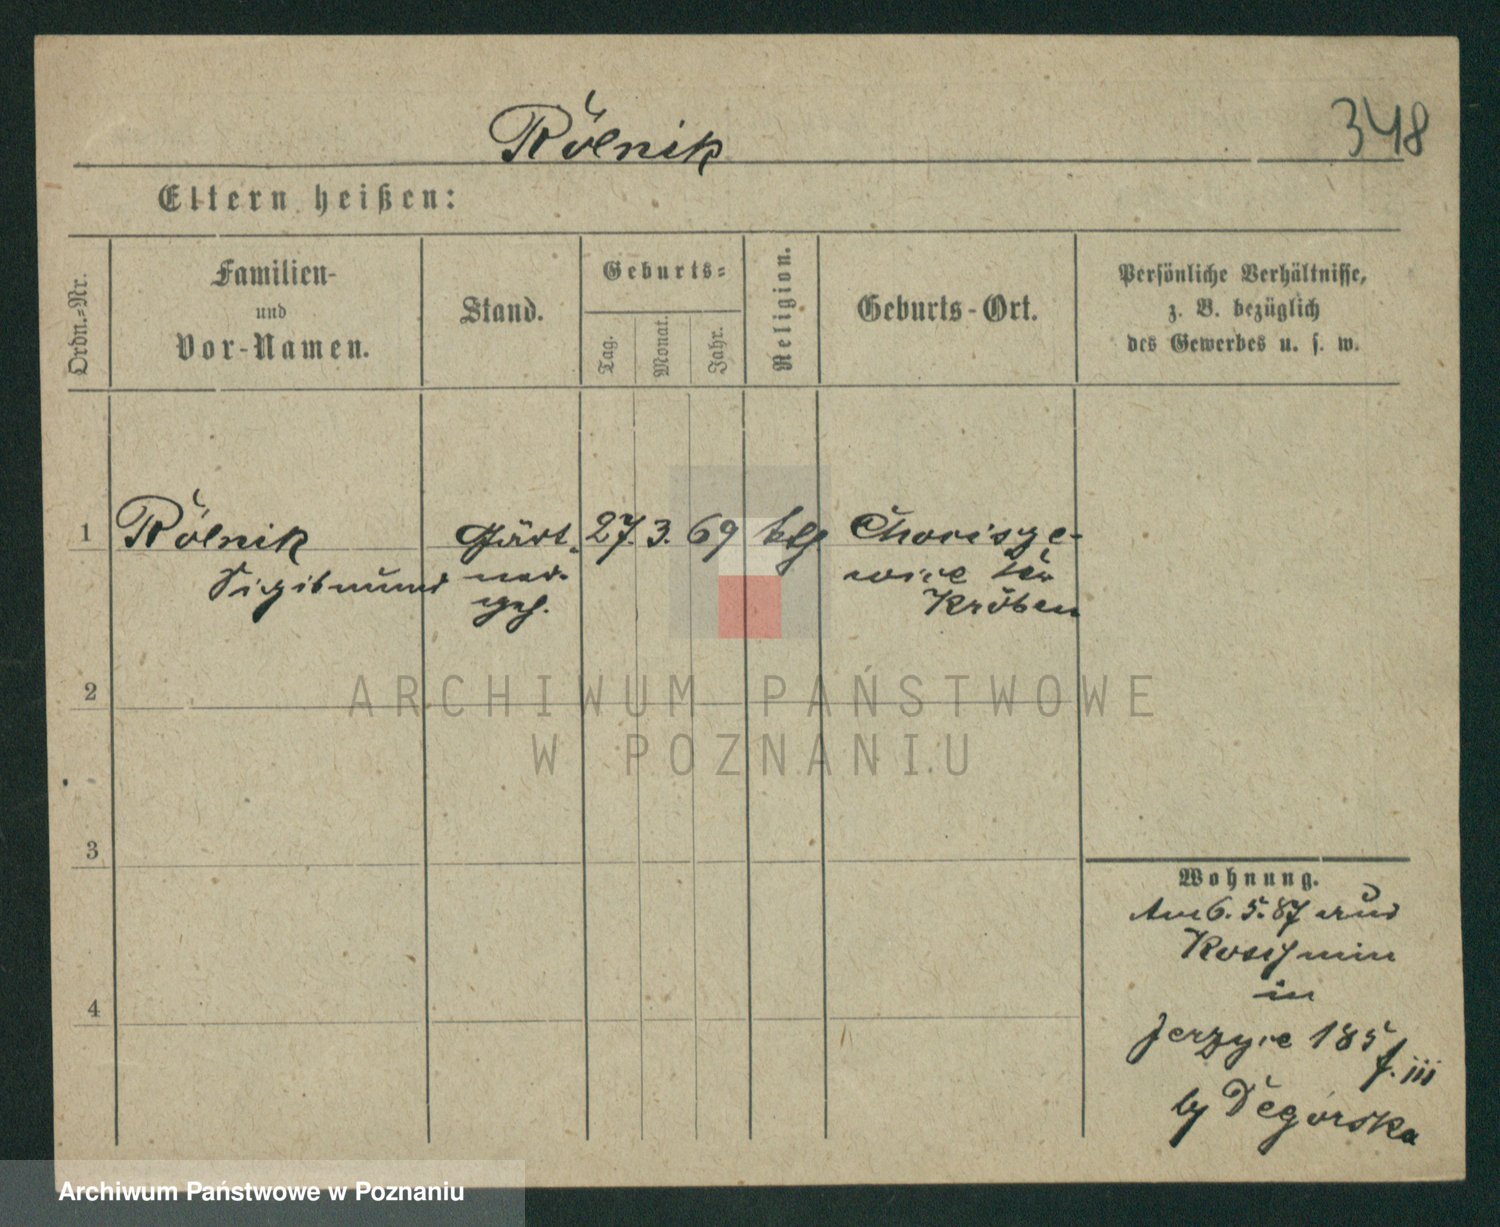 Rólnik
348
Eltern heißen:
Ordn.-Nr.
Familien-
und
Vor-Namen.
Stand.
Geburts-
Tag.
Monat.
Jahr.
Religion.
Geburts-Ort.
Persönliche Verhältnisse,
z. B. bezüglich
des Gewerbes u. s. w.
1
Rólnik
Sigismund
Gärt
ner
geh.
27. 3. 69
ktl
Chorisze-
wice Kr
Kröben
2
ARCHIWUM PAŃSTWOWE
W POZNANIU
3
4
Wohnung.
Am 6. 5. 87 aus
Koschmin
in
Jerzyce 185
f. iii
by Degórska
Archiwum Państwowe w Poznaniu